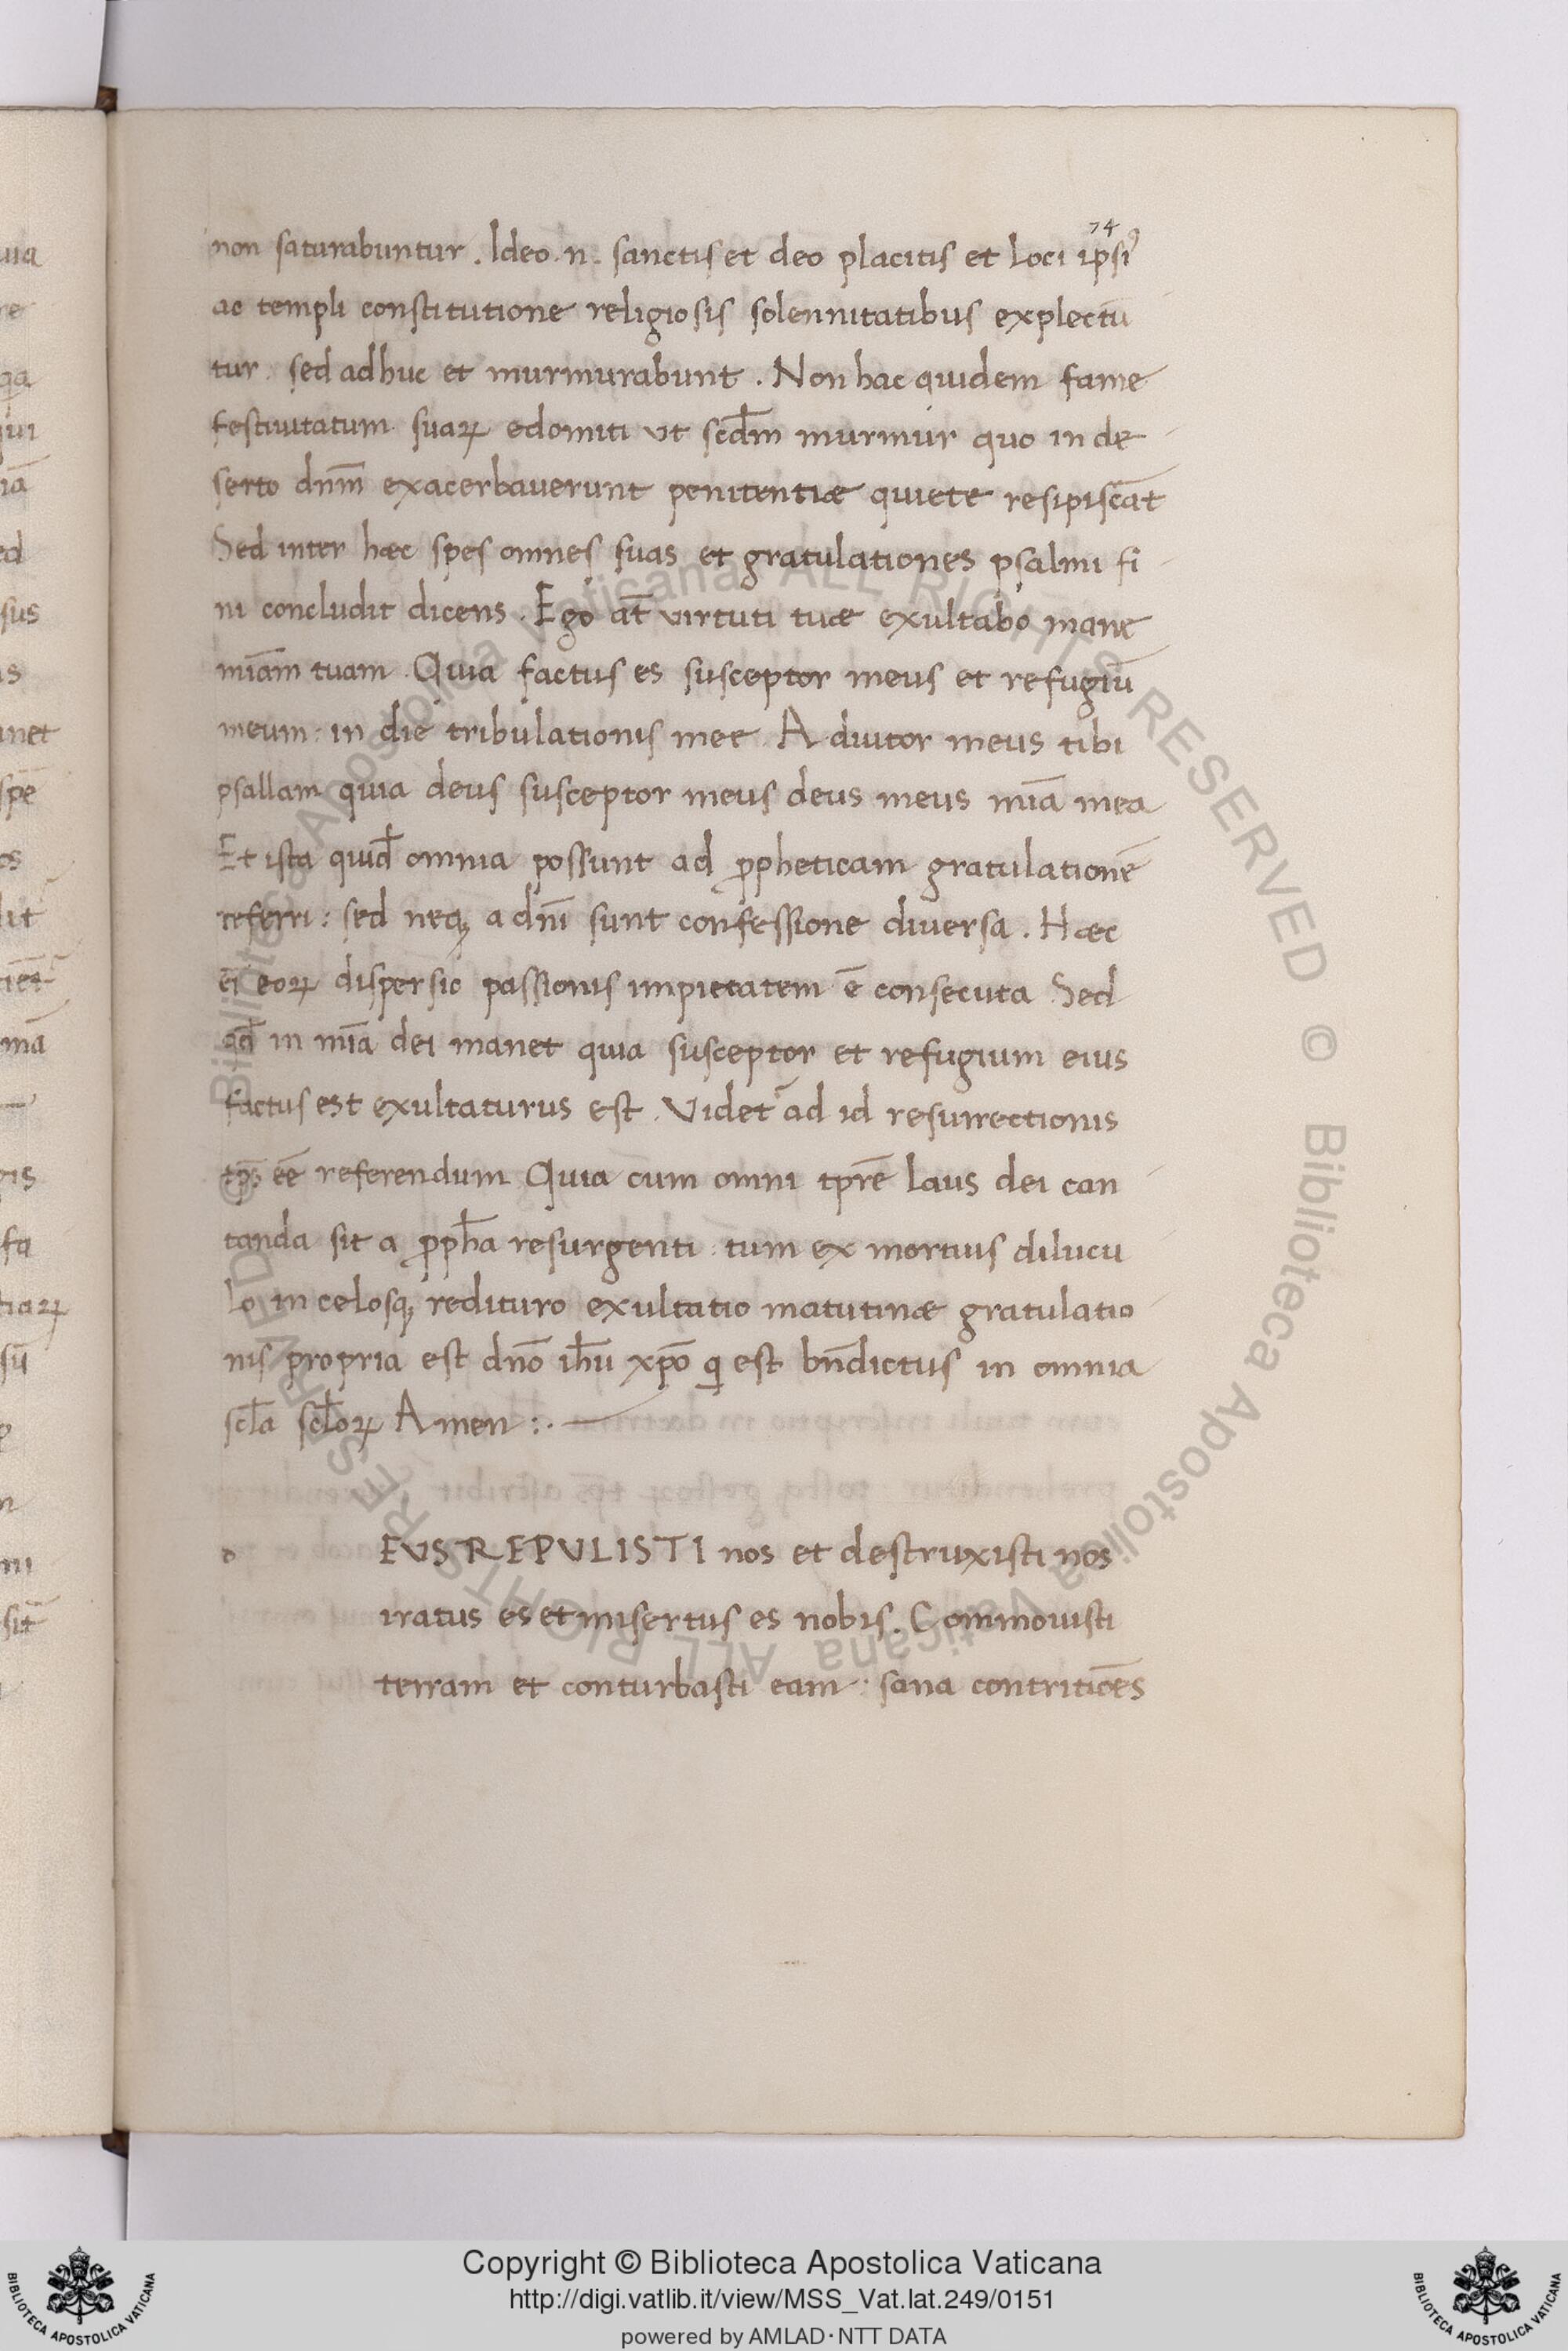 74
non saturabuntur. Ideo .n. sanctis et deo placitis et loci ipsiꝰ
ac templi constitutione religiosis solennitatibus explectū
tur. sed adhuc et murmurabunt. Non hac quidem fame
festiuitatum suaꝝ edomiti vt scd̄m murmur quo in de
serto dnm̄ exacerbauerunt penitentiæ quiete resipiscāt
Sed inter hæc spes omnes suas et gratulationes psalmi fi
ni concludit dicens. Ego at̄ virtuti tuæ exultabo mane
mīam tuam. Quia factus es susceptor meus et refugiū
meum: in die tribulationis mee. Adiutor meus tibi
psallam quia deus susceptor meus deus meus mīa mea
Et ista quid̄ omnia possunt ad ꝓpheticam gratulationē
referri: sed neqꝫ a dnī sunt confessione diuersa. Hæc
eī eoꝝ dispersio passionis impietatem ē consecuta Sed
qd̄ in mīa dei manet quia susceptor et refugium eius
factus est exultaturus est. Videt᷑ ad id resurrectionis
tp̄s eē referendum Quia cum omni tpr̄e laus dei can
tanda sit a ꝓph̄a resurgenti tum ex mortuis dilucu
lo in celosqꝫ redituro exultatio matutinæ gratulatio
nis propria est dnō ih̄u xp̄o qi est bn̄dictus in omnia
scl̄a scl̄oꝝ Amen:.
D EUS REPULISTI nos et destruxisti nos
iratus es et misertus es nobis. Commouisti
terram et conturbasti eam: sana contritiōes
Copyright © Biblioteca Apostolica Vaticana
http://digi.vatlib.it/view/MSS_Vat.lat.249/0151
powered by AMLAD·NTT DATA
BIBLIOTECA APOSTOLICA VATICANA
BIBLIOTECA APOSTOLICA VATICANA
© Biblioteca Apostolica Vaticana ALL RIGHTS RESERVED
© Biblioteca Apostolica Vaticana ALL RIGHTS RESERVED